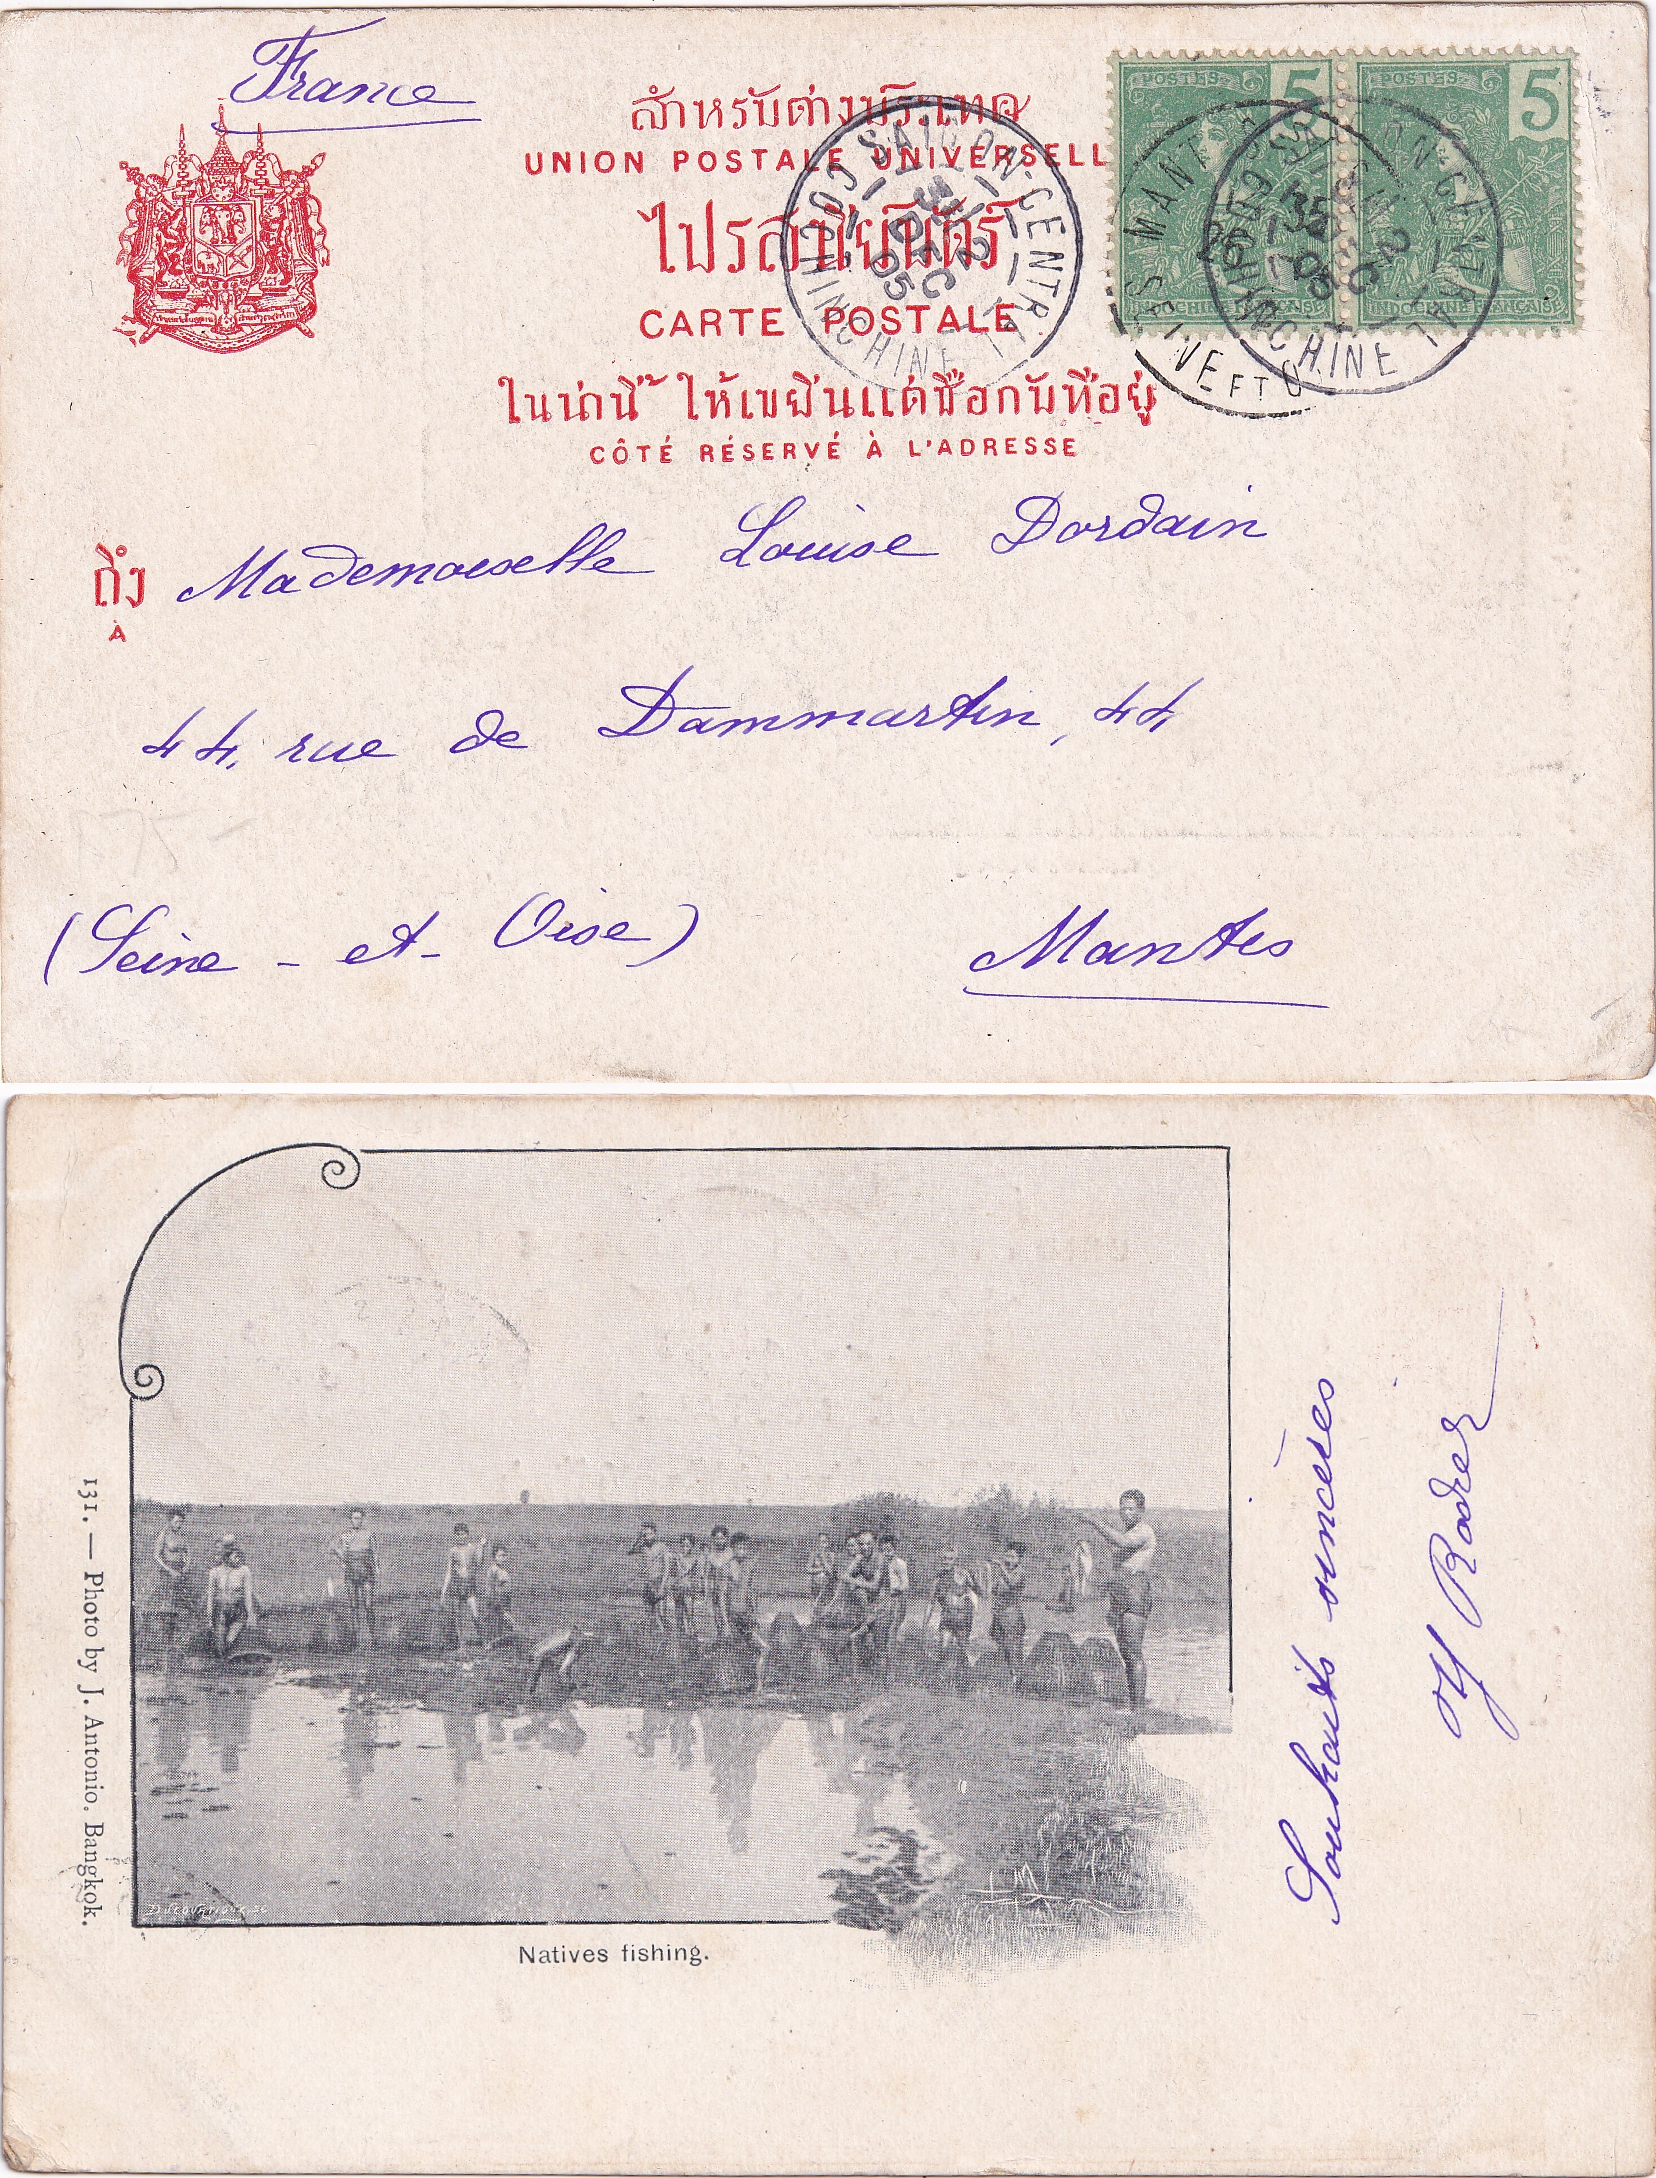 France
สำหรับต่างประเทศ
UNION POSTALE UNIVERSELL
ไปรสนียบัตร์
CARTE POSTALE
ในน่านี้ ให้เขยีนแต่ชื่อกับที่อยู่
CÔTÉ RÉSERVÉ À L'ADRESSE
POSTES 5
POSTES 5
INDOCHINE FRANÇAISE
SAIGON-CENTRAL
3E/2
1
DEC
05
COCHINCHINE
SAIGON-CENTRAL
DEC
05
COCHINCHINE
MANTES
26
SEINE ET O
ถึง Mademoiselle Louise Dordain
À
44, rue de Dammartin, 44
(Seine - et - Oise) Mantes
131. — Photo by J. Antonio. Bangkok.
Natives fishing.
Souhaits sincères
Rodier